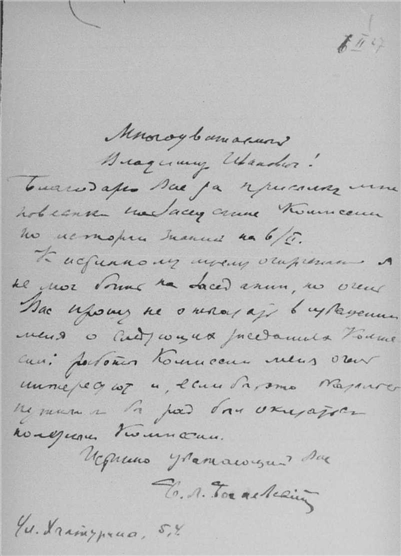 6 II 27
Многоуважаемый
Владимир Иванович!
Благодарю Вас за присылку мне
повестки на заседание Комиссии
по истории знаний на 6/II.
К истинному моему огорчению я
не мог быть на заседании, но очень
Вас прошу не отказать в извещении
меня о следующих заседаниях Комис
сии: работы Комиссии меня очень
интересуют и, если бы это оказалось
нужным я бы рад был оказаться
полезным Комиссии.
Истинно уважающий Вас
Ул. Халтурина, 5,